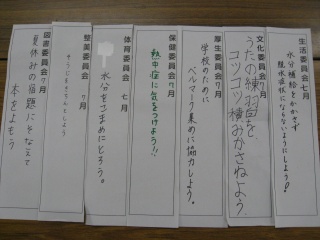 生活委員会 七月
水分補給をかかさず
脱水症状にならないようにしよう!
文化委員会 7月
うたの練習を、
コツコツ積みかさねよう
厚生委員会 7月
学校のために
ベルマーク集めに協力しよう。
保健委員会 7月
熱中症に気をつけよう!!
体育委員会 七月
水分をこまめにとろう。
整美委員会 7月
そうじをきちんとしよう
図書委員会 7月
夏休みの宿題にそなえて
本を よもう